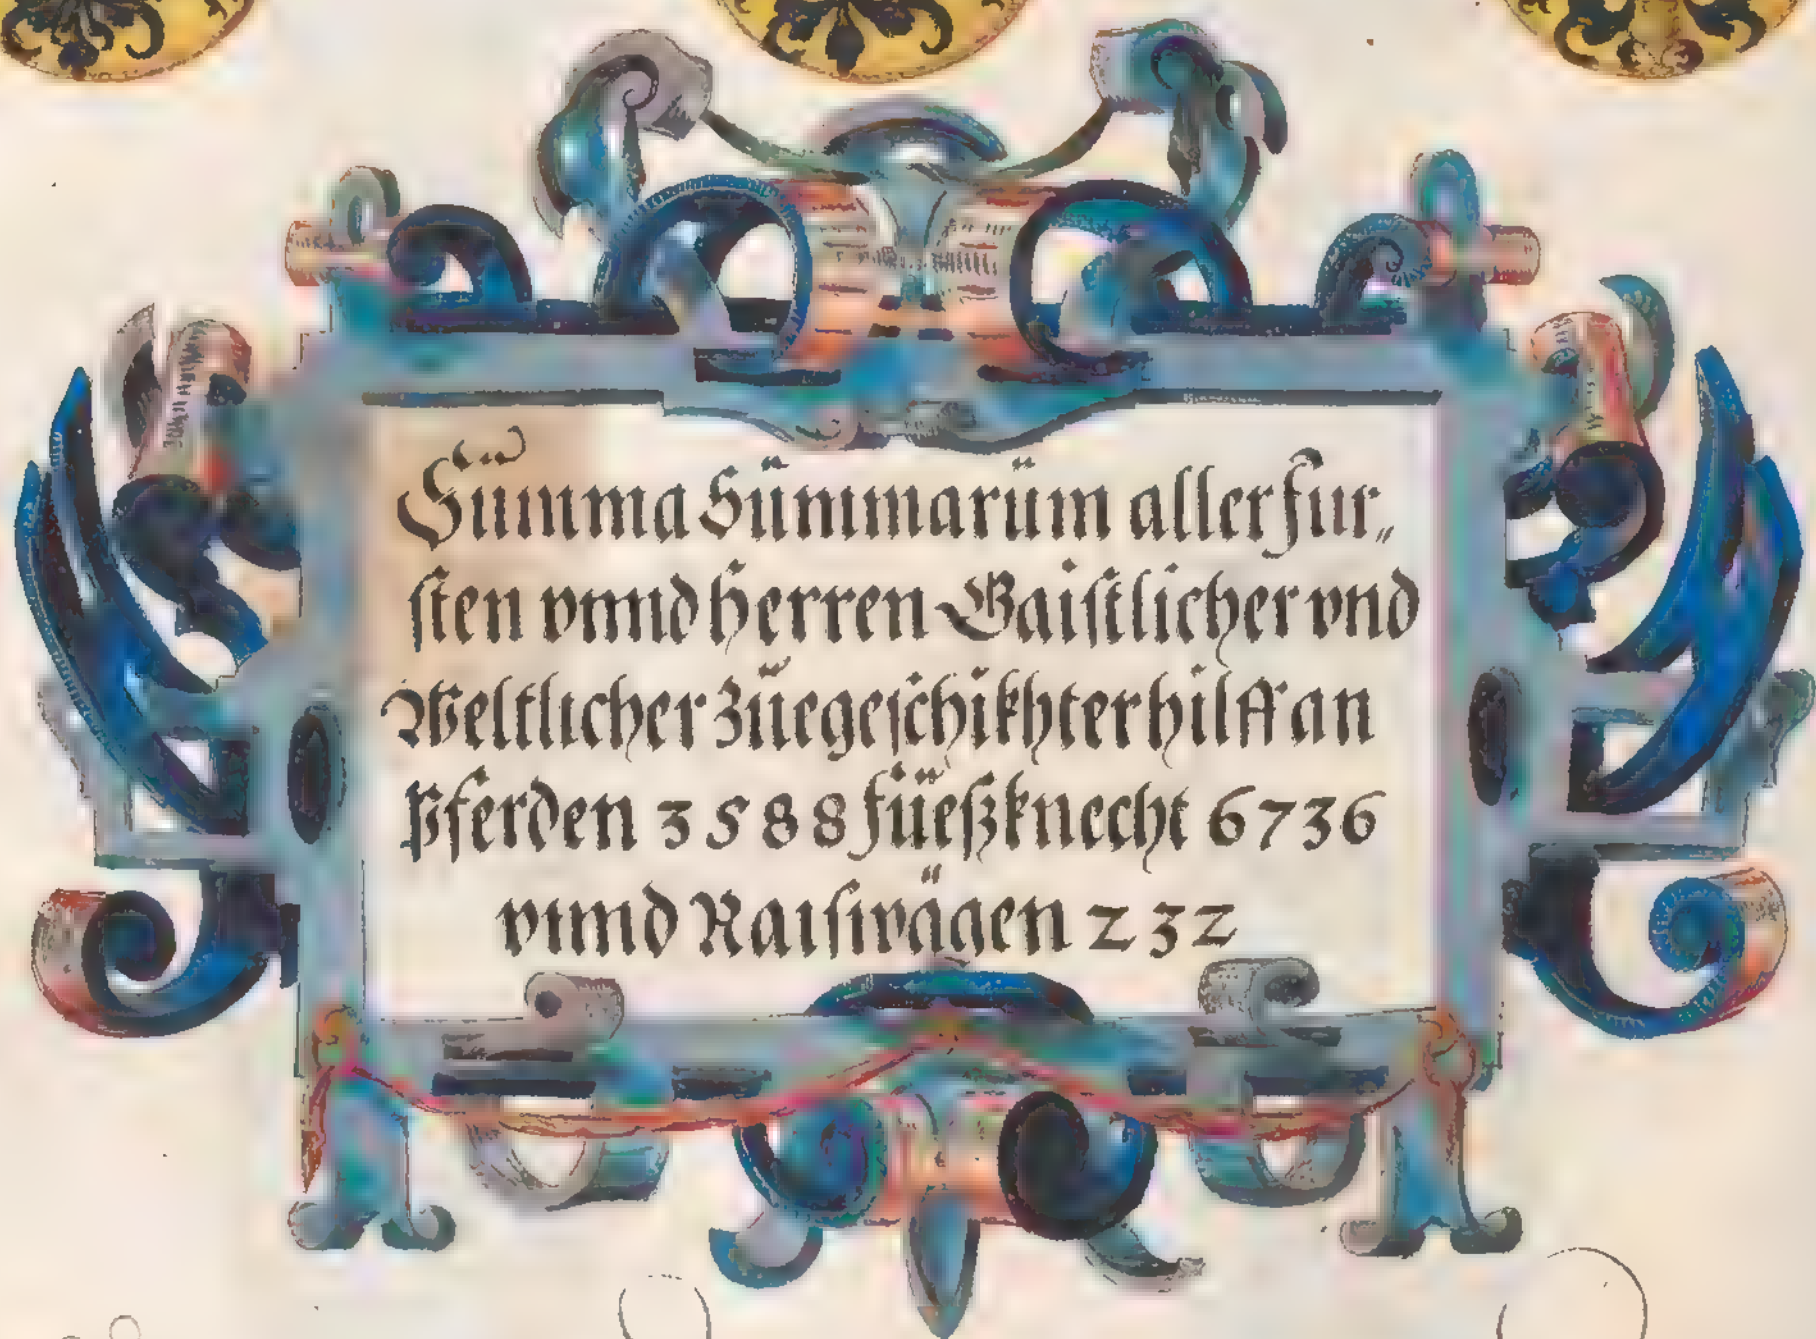 Sümma Sümmarüm aller fur„
sten vnnd herren Gaistlicher vnd
Weltlicher züegeschikhter hilff an
Pferden 3588 füeßknecht 6736
vnnd Raiswägen 232